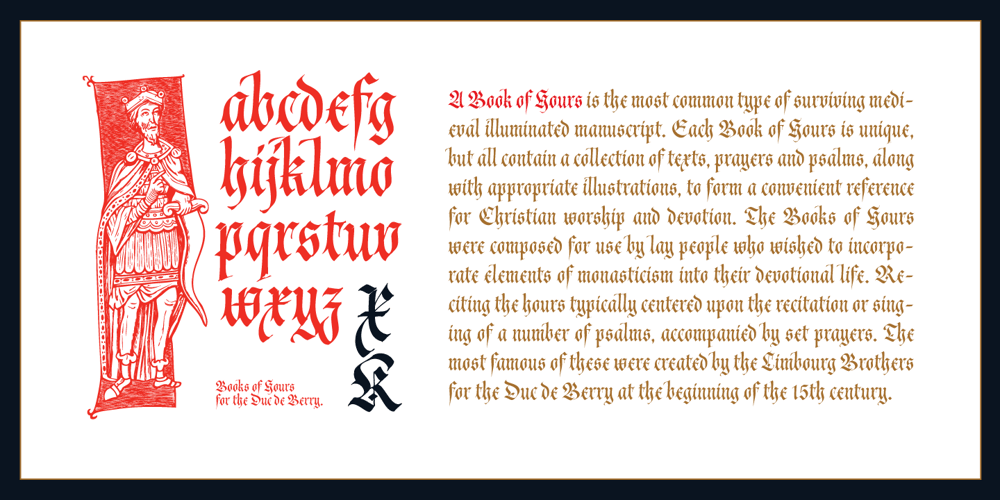 abcdefg
hijklmo
pqrstuv
wxyz
x
K
Books of Hours
for the Duc de Berry.
A Book of Hours is the most common type of surviving medi-
eval illuminated manuscript. Each Book of Hours is unique,
but all contain a collection of texts, prayers and psalms, along
with appropriate illustrations, to form a convenient reference
for Christian worship and devotion. The Books of Hours
were composed for use by lay people who wished to incorpo-
rate elements of monasticism into their devotional life. Re-
citing the hours typically centered upon the recitation or sing-
ing of a number of psalms, accompanied by set prayers. The
most famous of these were created by the Limbourg Brothers
for the Duc de Berry at the beginning of the 15th century.